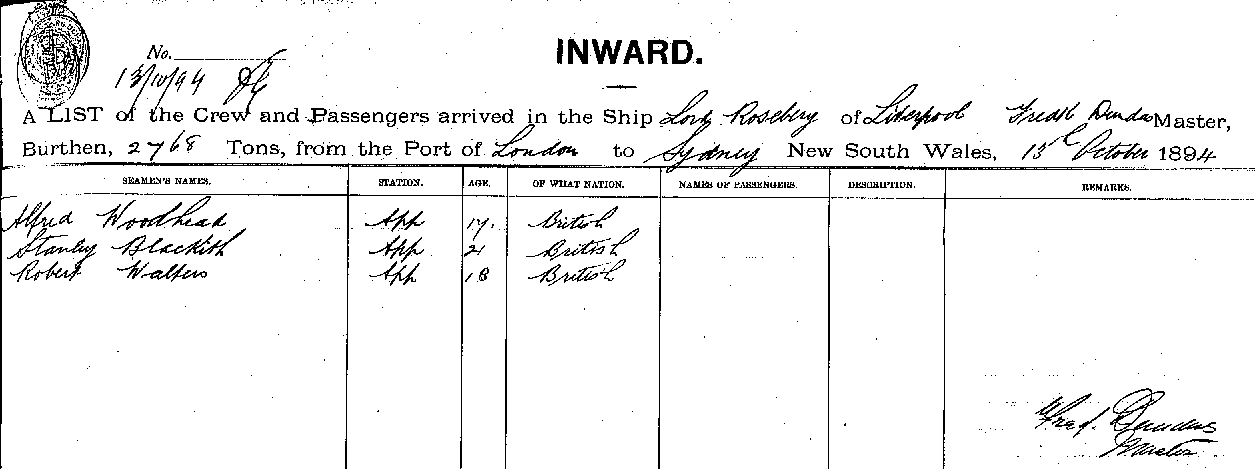 INWARD.
No.
13/10/94
A LIST of the Crew and Passengers arrived in the Ship Lord Rosebery of Liverpool Fredk Dundas Master,
Burthen, 2768 Tons, from the Port of London to Sydney New South Wales, 13th October 1894
SEAMEN'S NAMES. STATION. AGE. OF WHAT NATION. NAMES OF PASSENGERS. DESCRIPTION. REMARKS.
Alfred Woodhead App 17. British
Stanley Blackith App 21 British
Robert Walters App 18 British
Fred. Dundas
Master